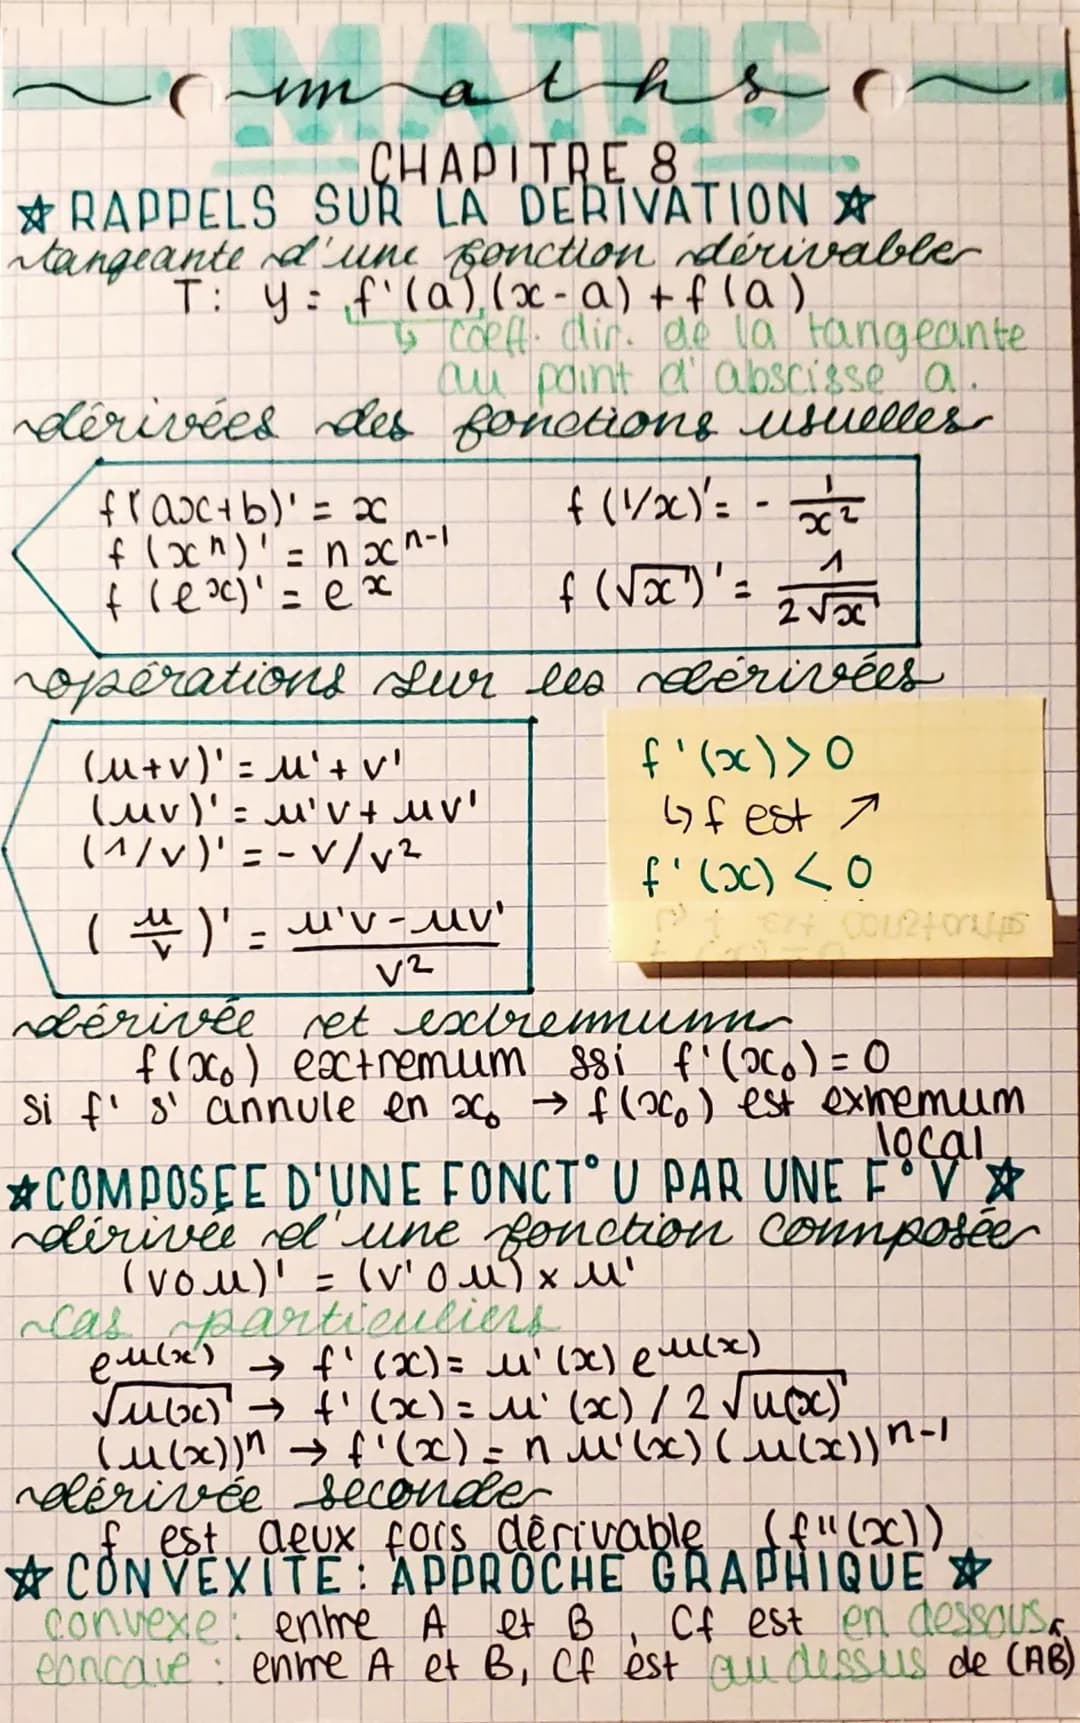 MATHS
maths
CHAPITRE 8
☆ RAPPELS SUR LA DERIVATION ☆
tangeante d'une fonction dérivable
T: y = f'(a)(x-a) + f(a)
↳ coeff. dir. de la tangeante
au point d'abscisse a.
dérivées des fonctions usuelles
f(ax+b)' = x
f(1/x)' = - 1/x²
f(xⁿ)' = n xⁿ⁻¹
f(eˣ)' = eˣ
f(√x)' = 1/2√x
opérations sur les dérivées
(u+v)' = u' + v'
(uv)' = u'v + uv'
(1/v)' = - v/v²
(u/v)' = u'v - uv' / v²
f'(x) > 0
↳ f est ↗
f'(x) < 0
dérivée et extremumm
f(x₀) extremum ssi f'(x₀) = 0
si f' s'annule en x₀ → f(x₀) est extremum
local
☆ COMPOSEE D'UNE FONCT° U PAR UNE F° V ☆
dérivée d'une fonction composée
(v o u)' = (v' o u) x u'
cas particuliers
e^u(x) → f'(x) = u'(x) e^u(x)
√u(x) → f'(x) = u'(x) / 2 √u(x)
(u(x))ⁿ → f'(x) = n u'(x) (u(x))ⁿ⁻¹
dérivée seconde
f est deux fois dérivable (f''(x))
☆ CONVEXITE : APPROCHE GRAPHIQUE ☆
convexe : entre A et B, Cf est en dessous
concave : entre A et B, Cf est au dessus de (AB)